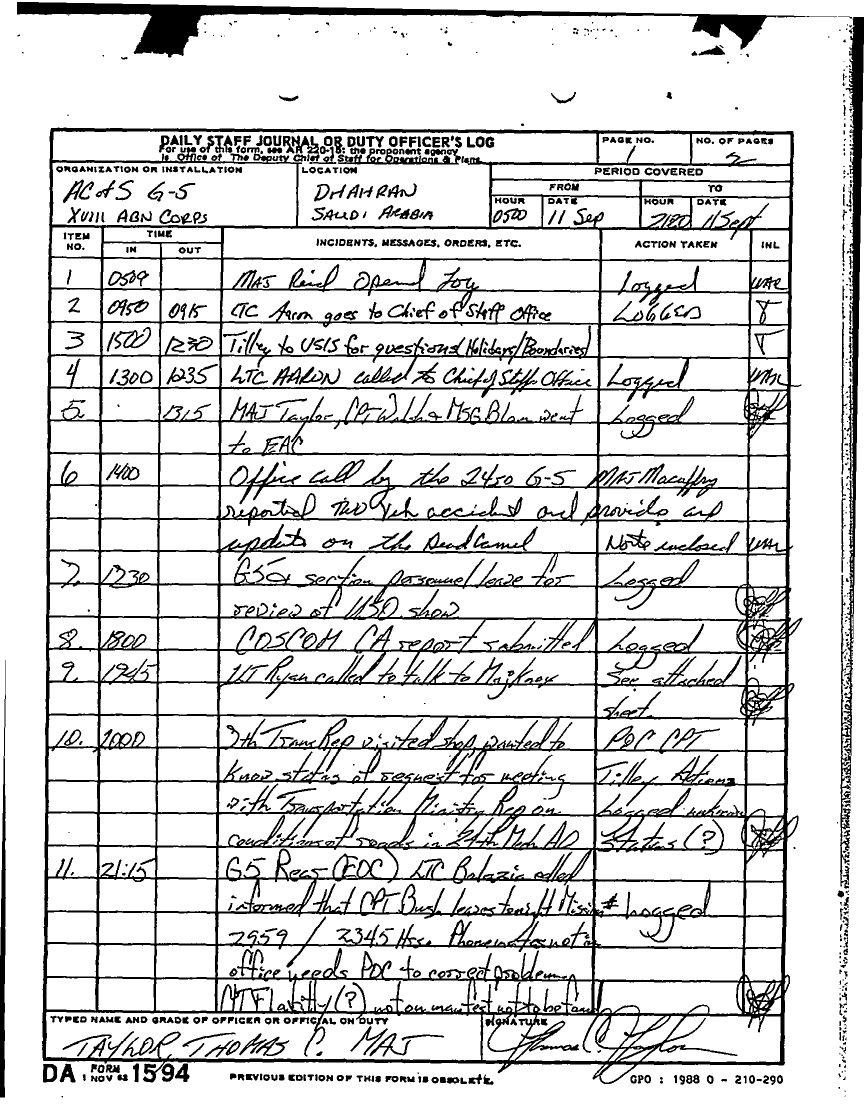 DAILY STAFF JOURNAL OR DUTY OFFICER'S LOG
For use of this form, see AR 220-15; the proponent agency
is Office of The Deputy Chief of Staff for Operations & Plans.
PAGE NO.
1
NO. OF PAGES
2
ORGANIZATION OR INSTALLATION
AC of S G-5
XVIII ABN CORPS
LOCATION
DHAHRAN
SAUDI ARABIA
PERIOD COVERED
FROM
TO
HOUR
DATE
HOUR
DATE
0500
11 Sep
2100
11 Sept
ITEM NO.
TIME
IN
OUT
INCIDENTS, MESSAGES, ORDERS, ETC.
ACTION TAKEN
INL
1 0509 MAJ Reid Opened Log Logged
2 0950 0915 LTC Aaron goes to Chief of Staff Office LOGGED T
3 1500 1230 Tilley to USIS for questions (Holidays/Boundaries) T
4 1300 1235 LTC AARON called to Chief of Staff Office Logged
5. 1315 MAJ Taylor, CPT Walsh & MSG Blom went Logged
to EAC
6 1400 Office call by the 24th G-5 MAJ
reported Two Veh accident and provide
update on the Dead Camel Note enclosed
7. 1730 G5 section personnel leave for Logged
review of USO show.
8. 1800 COSCOM CA report submitted Logged
9. 1945 LT Ryan called to talk to Maj Knox See attached
sheet.
10. 2000 Trans Rep visited shop, wanted to POC CPT
know status of request for meeting Tilley Actions
with Transportation Ministry Rep on Logged unknown
conditions of roads in 24th Mech AO Status (?)
11. 21:15 G5 Rear (EOC) LTC called
informed that CPT Bush leaves tonight Mission # Logged
2959 / 2345 Hrs. Phone
office needs POC to correct problem,
(?) not on manifest not to be found
TYPED NAME AND GRADE OF OFFICER OR OFFICIAL ON DUTY
TAYLOR, THOMAS C. MAJ
SIGNATURE
Thomas C. Taylor
DA FORM 1 NOV 62 1594
PREVIOUS EDITION OF THIS FORM IS OBSOLETE.
GPO : 1988 O - 210-290